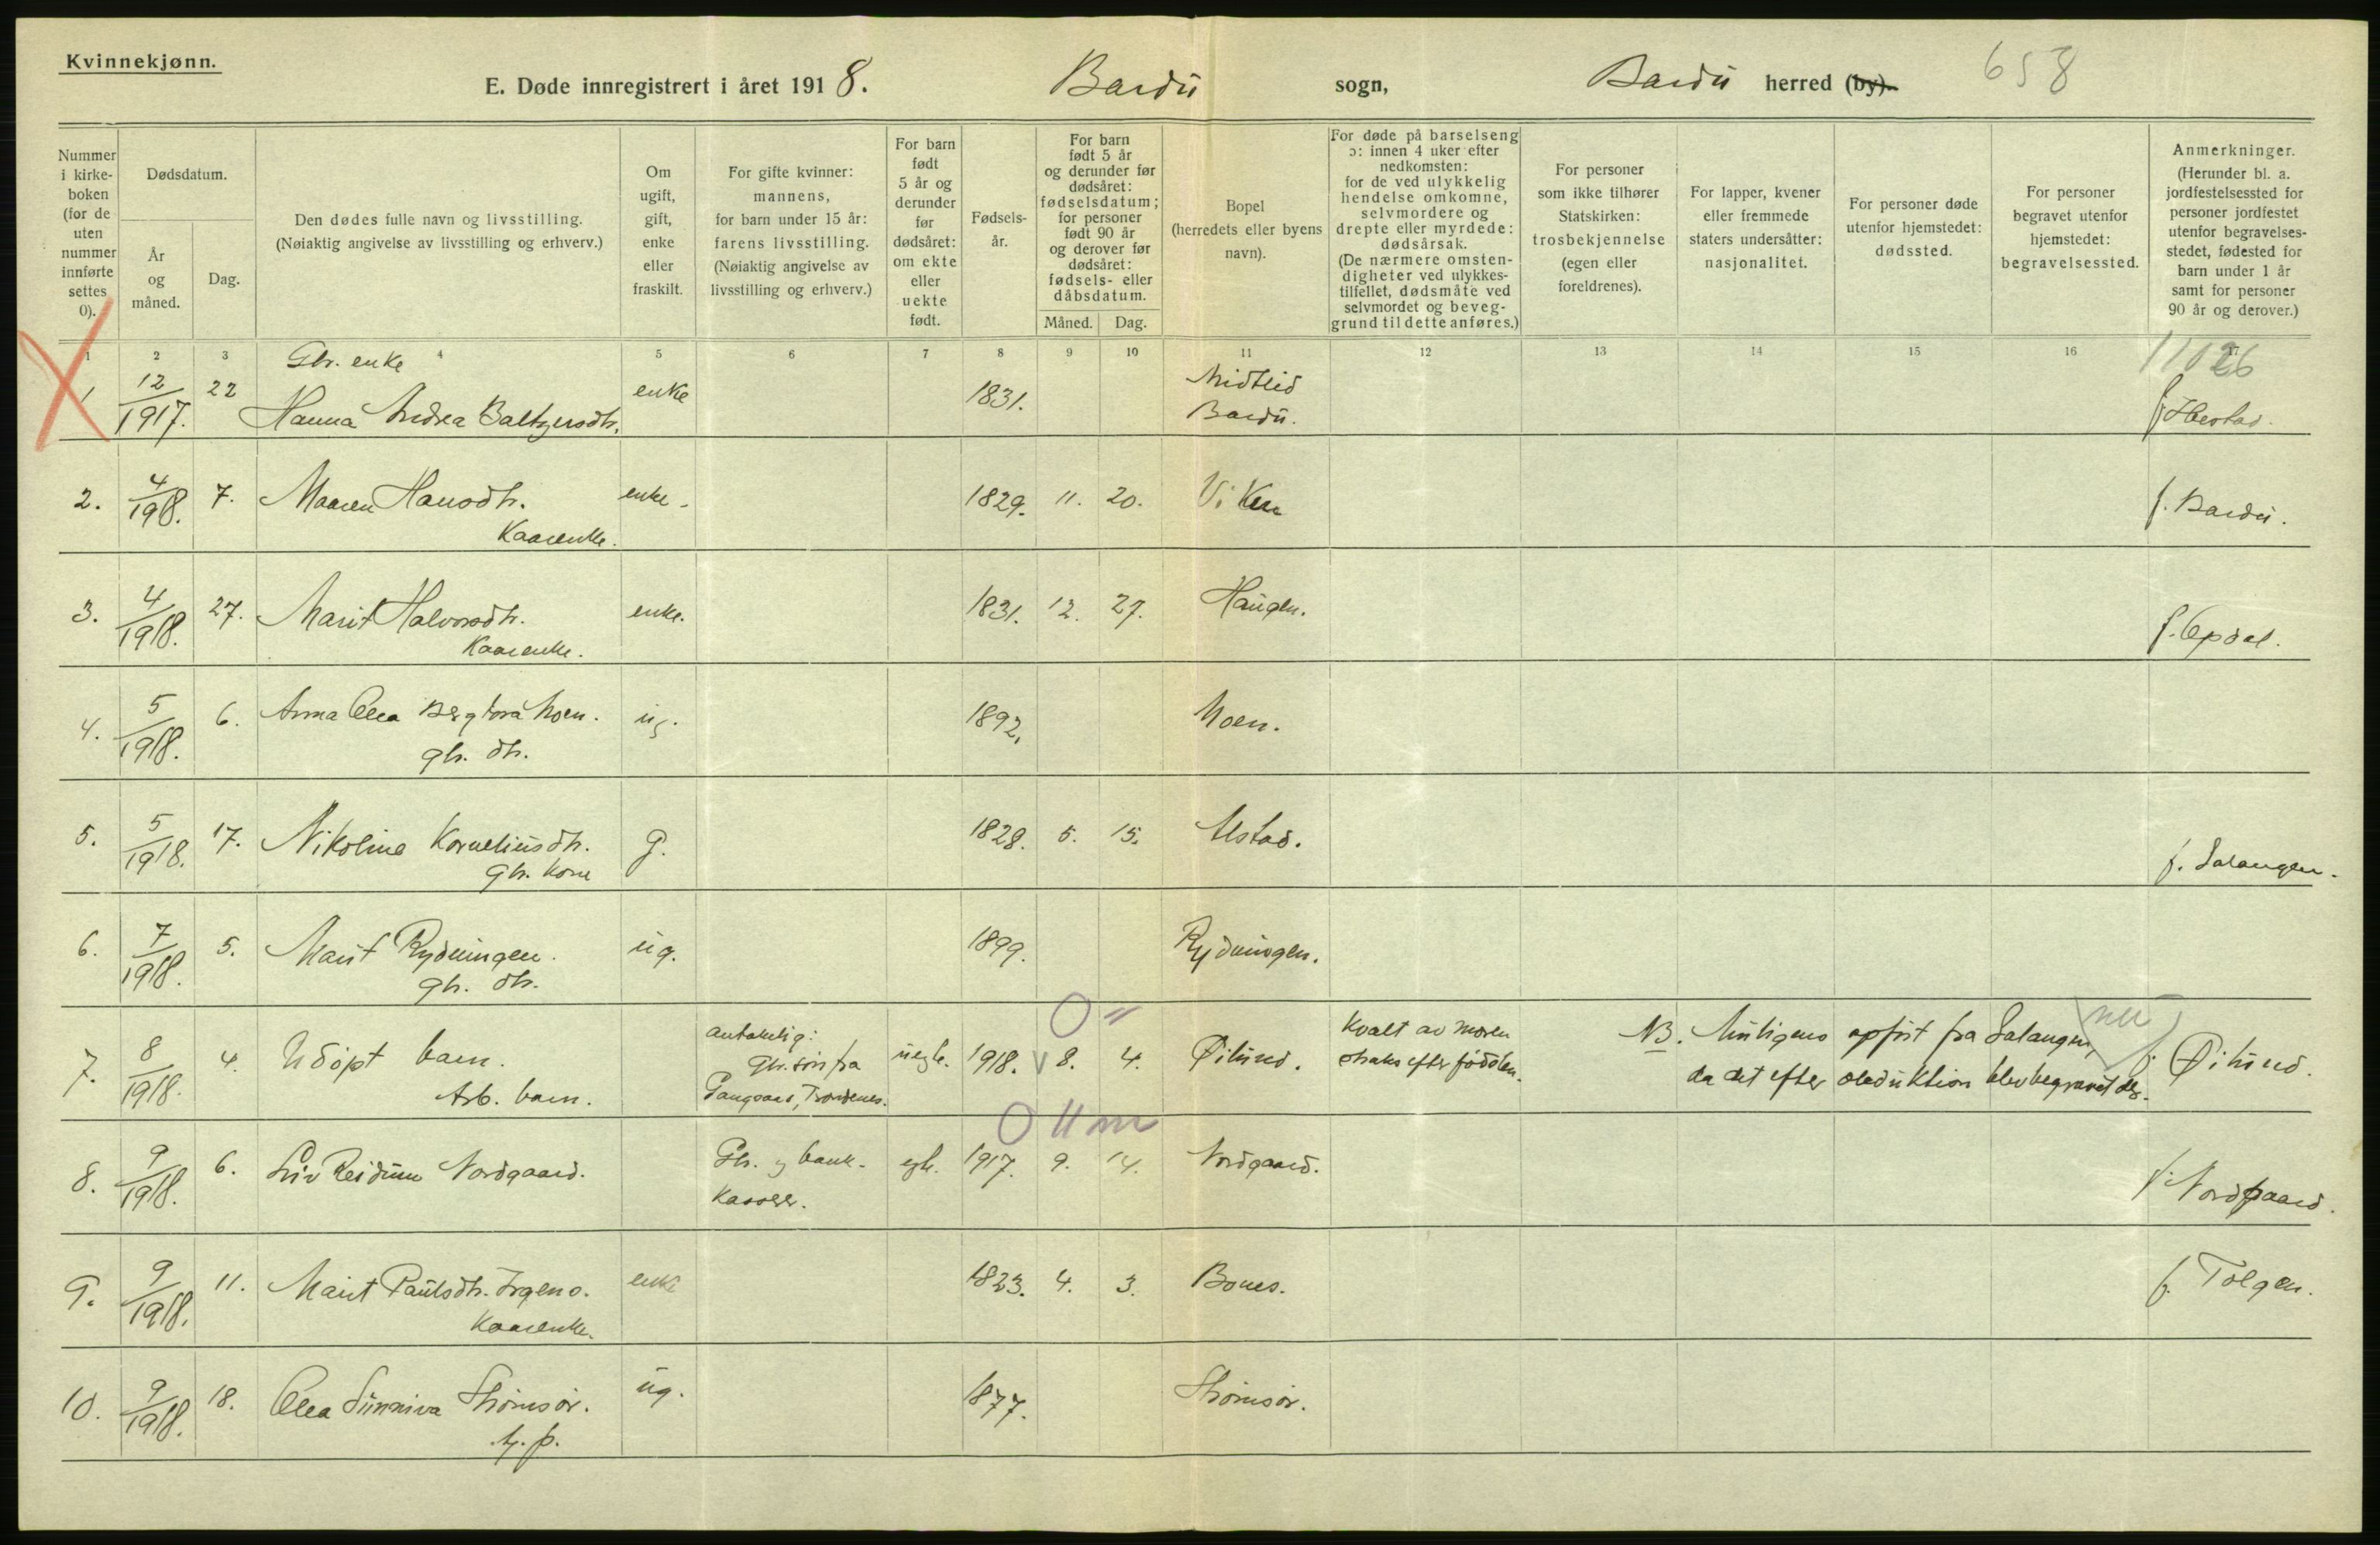 Kvinnekjønn.
E. Døde innregistrert i året 1918. Bardu sogn, Bardu herred (by). 658
Nummer i kirke-boken (for de uten nummer innførte settes 0).
Dødsdatum.
År og måned.
Dag.
Den dødes fulle navn og livsstilling.
(Nøiaktig angivelse av livsstilling og erhverv.)
Om ugift, gift, enke eller fraskilt.
For gifte kvinner: mannens, for barn under 15 år: farens livsstilling.
(Nøiaktig angivelse av livsstilling og erhverv.)
For barn født 5 år og derunder før dødsåret: om ekte eller uekte født.
Fødsels-år.
For barn født 5 år og derunder før dødsåret: fødselsdatum; for personer født 90 år og derover før dødsåret: fødsels- eller dåbsdatum.
Måned. Dag.
Bopel
(herredets eller byens navn).
For døde på barselseng ɔ: innen 4 uker efter nedkomsten: for de ved ulykkelig hendelse omkomne, selvmordere og drepte eller myrdede: dødsårsak.
(De nærmere omsten-digheter ved ulykkes-tilfellet, dødsmåte ved selvmordet og beveg-grund til dette anføres.)
For personer som ikke tilhører Statskirken: trosbekjennelse (egen eller foreldrenes).
For lapper, kvener eller fremmede staters undersåtter: nasjonalitet.
For personer døde utenfor hjemstedet: dødssted.
For personer begravet utenfor hjemstedet: begravelsessted.
Anmerkninger.
(Herunder bl. a. jordfestelsessted for personer jordfestet utenfor begravelses-stedet, fødested for barn under 1 år samt for personer 90 år og derover.)
1 2 3 4 5 6 7 8 9 10 11 12 13 14 15 16 17
11026
1 12/1917. 22 Gbr. enke Hanna Andrea Baltzersdtr. enke 1831. Midtlid Bardu. f. Ibestad.
2. 4/1918. 7. Maaren Hansdtr. Kaarenke. enke. 1829. 11. 20. Viken f. Bardu.
3. 4/1918. 27. Marit Halvorsdtr. Kaarenke. enke. 1831. 12. 27. Haugen. f. Opdal.
4. 5/1918. 6. Anna Olea Bergtora Moen. gbr. dtr. ug. 1892. Moen.
5. 5/1918. 17. Nikoline Korneliusdtr. Gbr. Kone g. 1828. 5. 15. Alstad. f. Salangen.
6. 7/1918. 5. Marit Rydningen. gbr. dtr. ug. 1899. Rydningen.
7. 8/1918. 4. Udøpt barn. Arb. barn. antakelig: Gbr. søn fra Gangsaas, Trondenes. uegte. 1918. 8. 4. Øilund. Kvalt av moren straks efter fødslen. NB. Muligens opført fra Salangen, da det efter obduktion blev begravet der. f. Øilund.
8. 9/1918. 6. Liv Reidun Nordgaard. Gbr. og bank-kasser. egte. 1917. 9. 14. Nordgaard. f. Nordgaard.
9. 9/1918. 11. Marit Paulsdtr. Irgens. Kaarenke. enke 1823. 4. 3. Bones. f. Tolgen.
10. 9/1918. 18. Olea Sunniva Strømsør. ug. 1877. Strømsør.